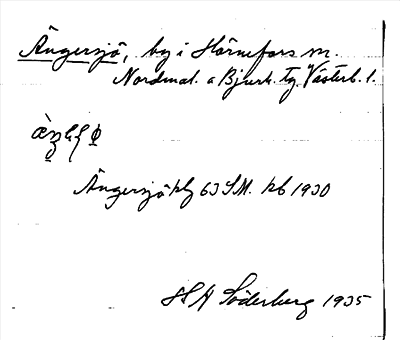 Ängersjö, by i Hörnefors sn.
Nordmal. o Bjurh. tg. Västerb. l.
Ängersjö hpl 63 S.M. kb 1930
H A Söderberg 1935